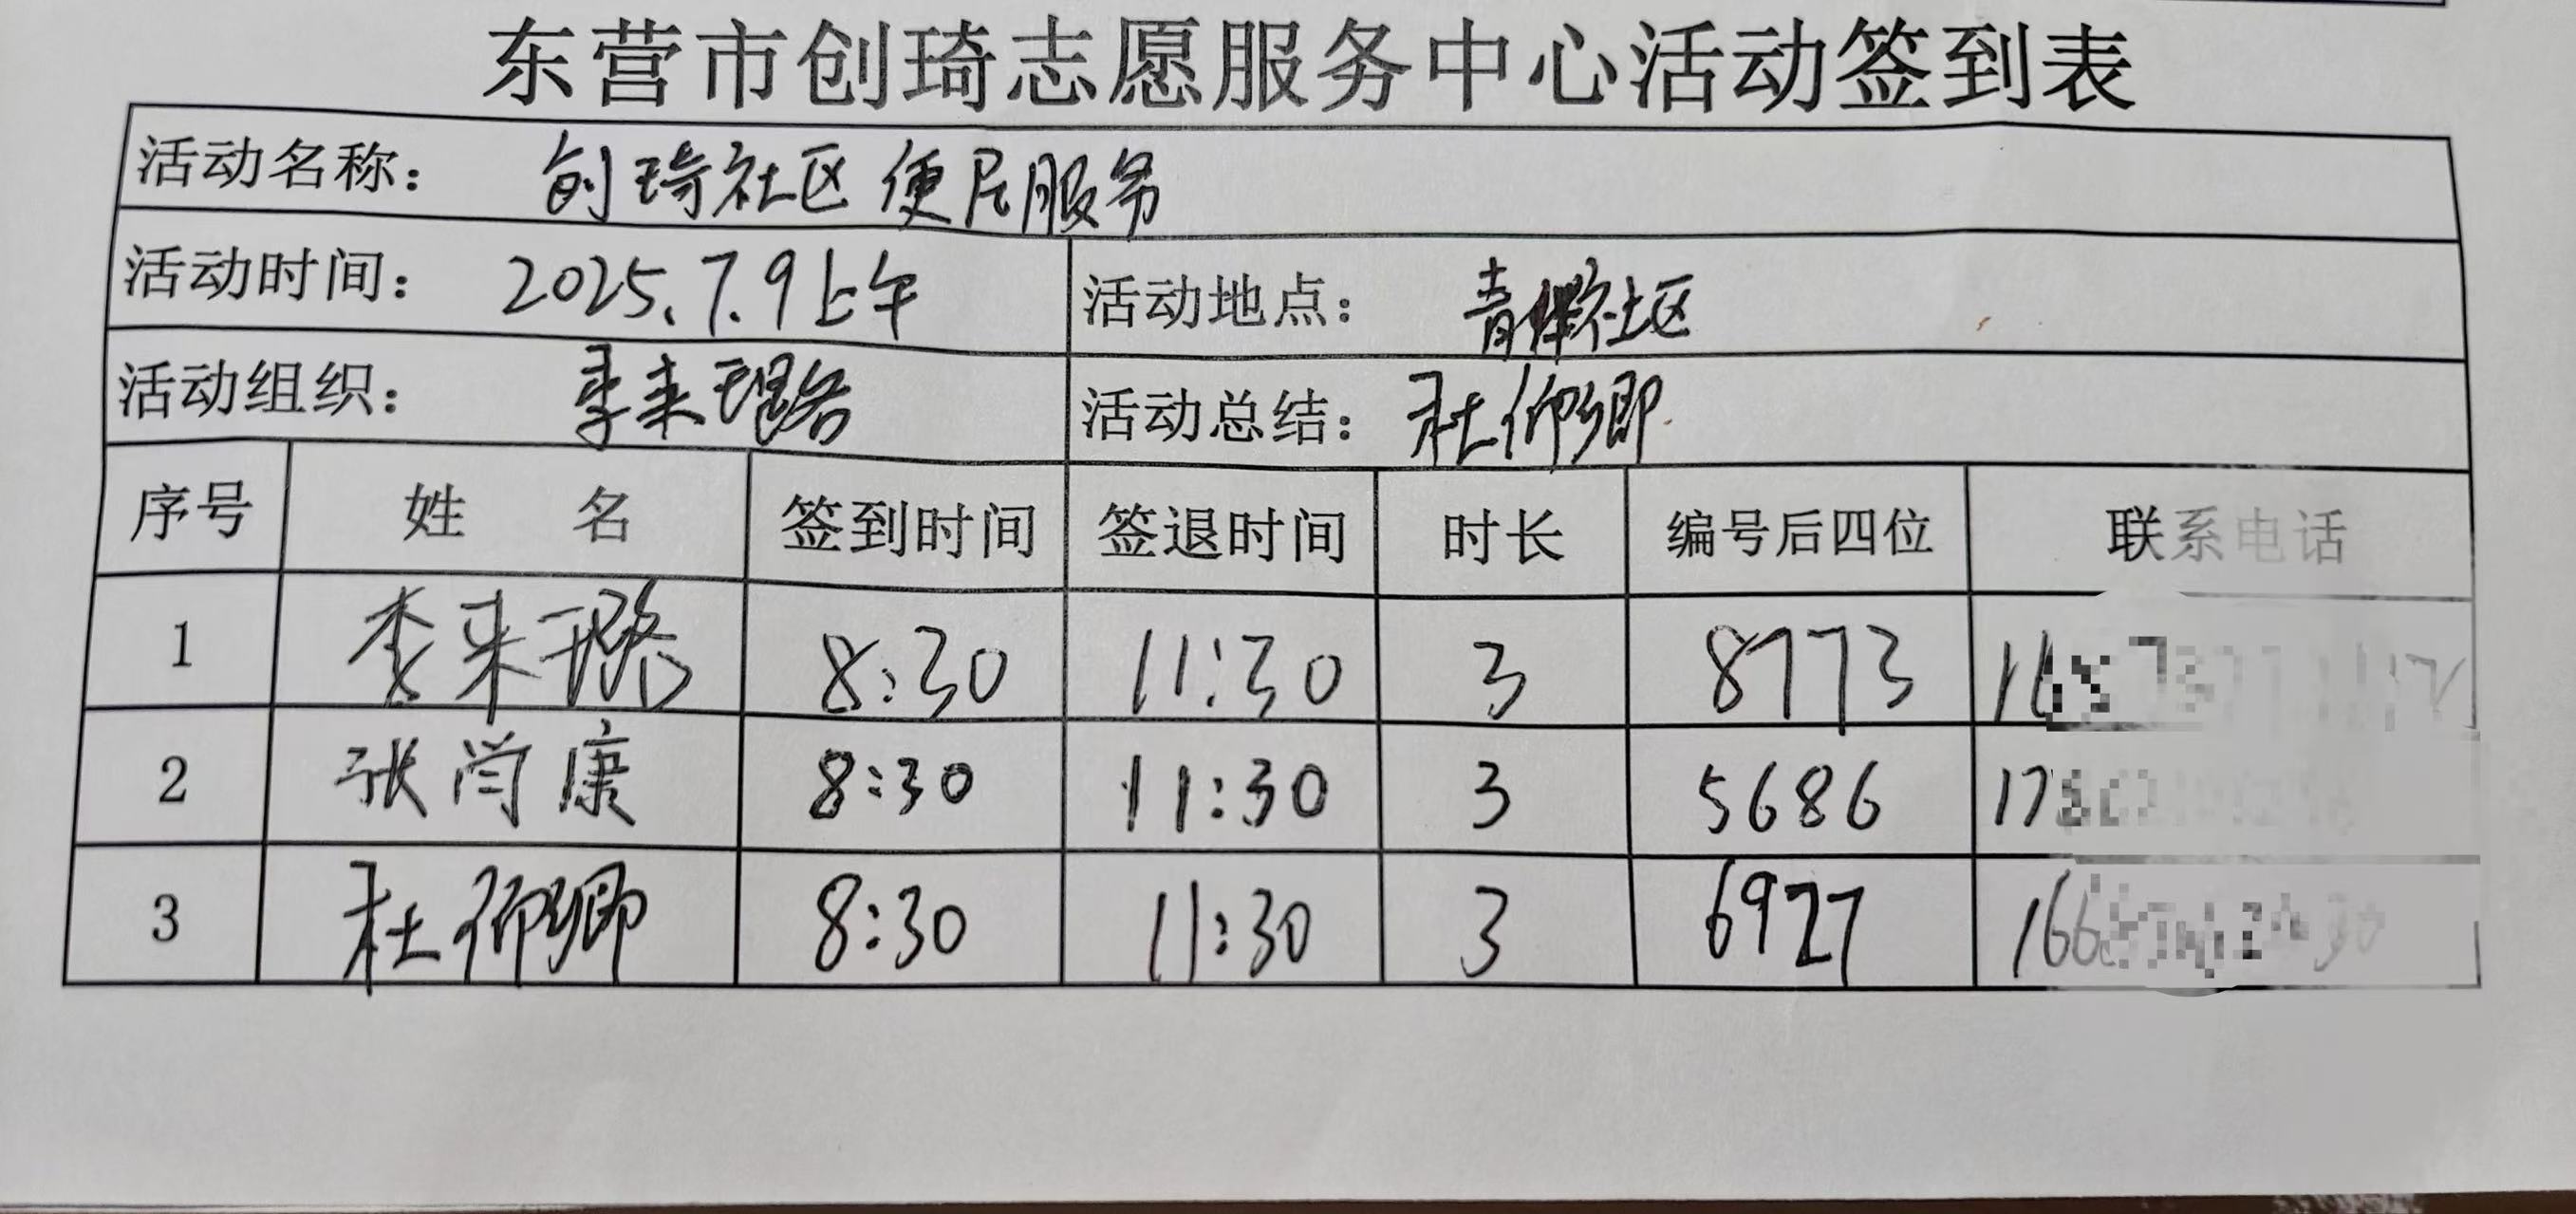 东营市创琦志愿服务中心活动签到表
活动名称: 创琦社区便民服务
活动时间: 2025.7.9上午 活动地点: 社区
活动组织: 李来琨 活动总结: 杜仰卿
序号 姓 名 签到时间 签退时间 时长 编号后四位 联系电话
1 李来 8:30 11:30 3 8773
2 张尚康 8:30 11:30 3 5686 17
3 杜仰卿 8:30 11:30 3 6927 166